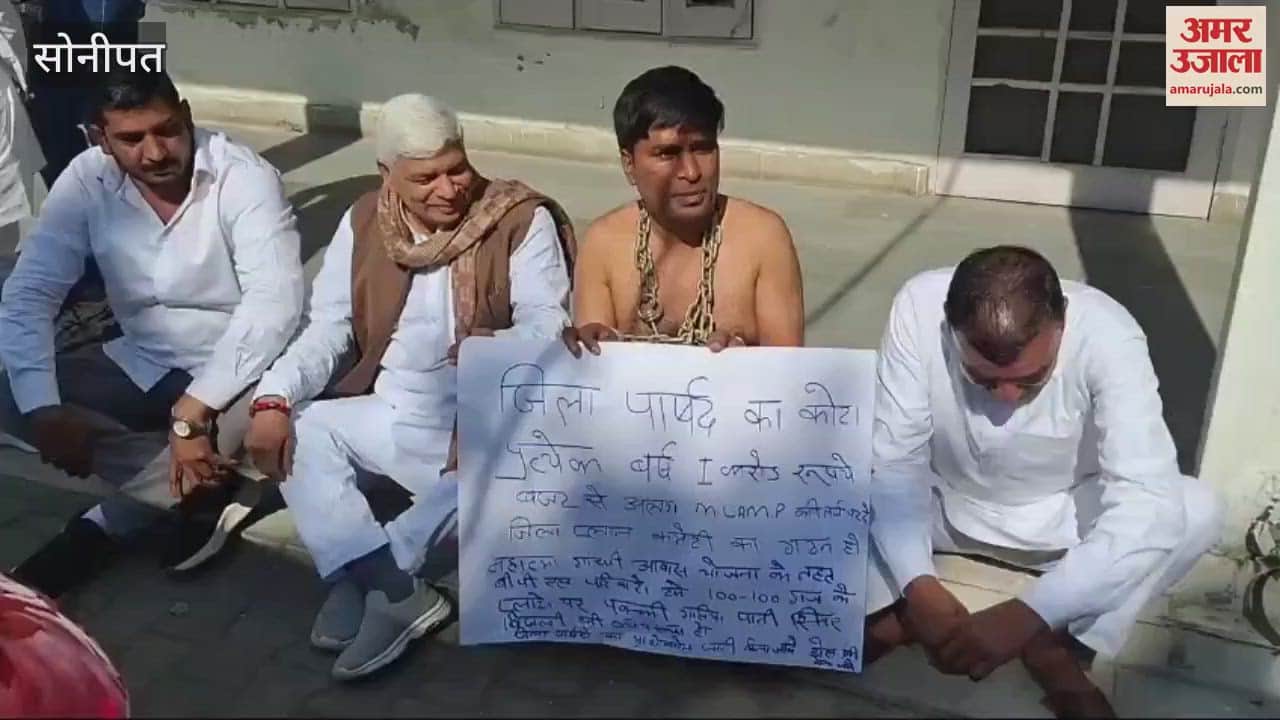 सोनीपत
अमर
उजाला
amarujala.com
जिला पार्षद का कोटा
प्रत्येक वर्ष 1 करोड रूपये
बजट से अलग MLAMP की तर्ज पर हो
जिला प्लान कमेटी का गठन हो
महात्मा गान्धी आवास योजना के तहत
बी पी एल परिवारो 100-100 गज के
प्लाटो पर पक्की गलिया पानी सिवर
बिजली की हो
जिला पार्षदो का जारी किया जाये